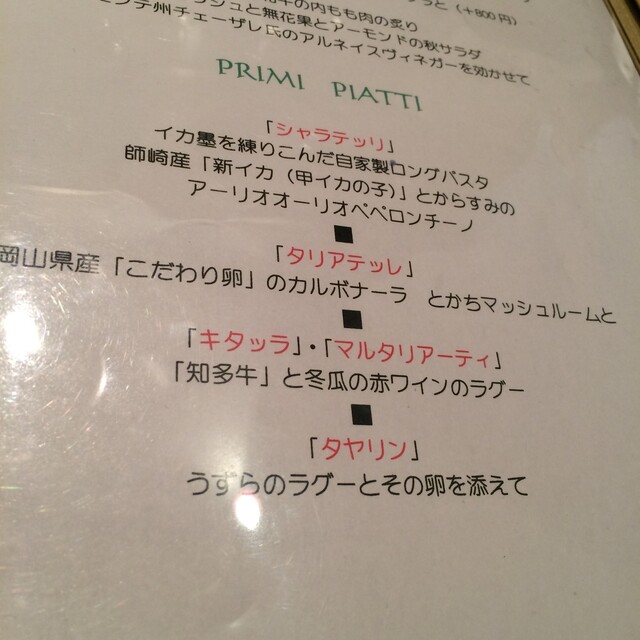 っと（+800円）
牛の内もも肉の炙り
ッシュと無花果とアーモンドの秋サラダ
テ州チェーザレ氏のアルネイスヴィネガーを効かせて
PRIMI PIATTI
「シャラテッリ」
イカ墨を練りこんだ自家製ロングパスタ
師崎産「新イカ（甲イカの子）」とからすみの
アーリオオーリオペペロンチーノ
「タリアテッレ」
岡山県産「こだわり卵」のカルボナーラ とかちマッシュルームと
「キタッラ」・「マルタリアーティ」
「知多牛」と冬瓜の赤ワインのラグー
「タヤリン」
うずらのラグーとその卵を添えて